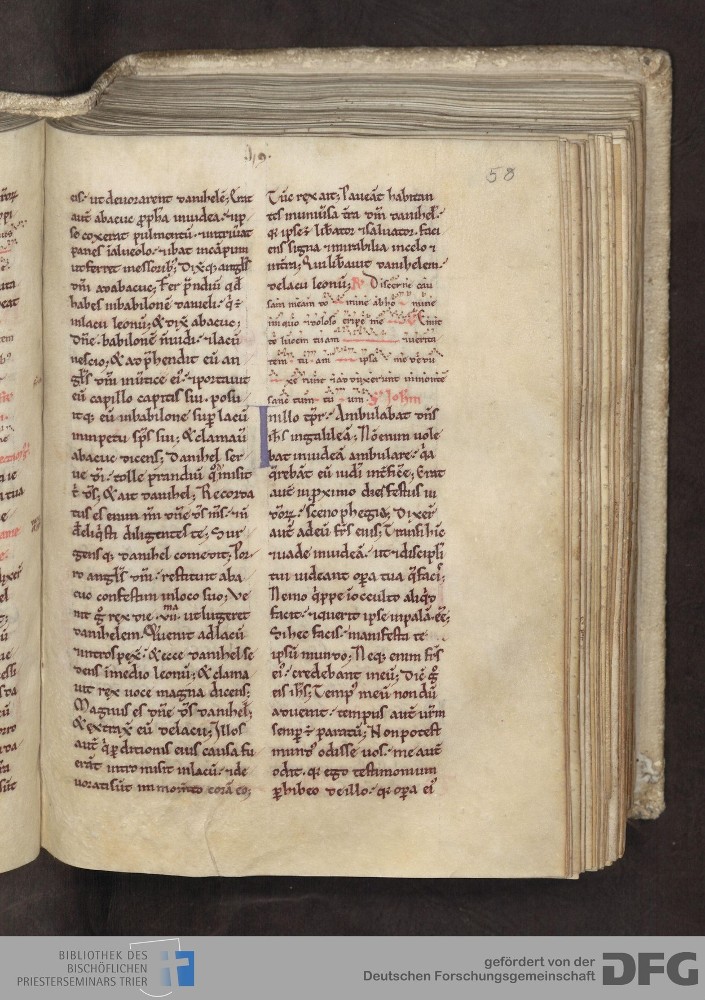 58
eis. ut devorarent danihelē; Erat
aut̄ abacuc ꝓpħa in iudea. ⁊ ip
se coxerat pulmentū. ⁊ intriuat
panes ī alueolo. ⁊ ibat in cāpum
ut ferret messorib;; Dixitq; angl̄s
dn̄i ad abacuc; Fer p̄ndiū qd̄
habes in babilonē danieli. q̄ ē
in lacu leonū; & dix̄ abacuc;
Dn̄e. babilonē n̄ uidi. ⁊ lacū
nescio; & app̄hendit eū an
gl̄s dn̄i in u̇tice ei᷒. ⁊ portauit
eū capillo capitis sui. posu
itq; eū in babilone suꝑ lacū
in impetu sp̄s sui; & clamaū
abacuc dicens; Danihel ser
ue dī. tolle prandiū qd̄ misit
t̄ ds̄; & ait danihel; Recorda
tus es enim mī dn̄e ds̄ ms̄. ⁊ n̄
dereliq̄sti diligentes te; Sur
gensq; danihel comedit; Por
ro angl̄s dn̄i. restituit aba
cuc confestim in loco suo; Ve
nit g̊ rex die .vii.ma ut lugeret
danihelem. & uenit ad lacū
⁊ introspex̄. & ecce danihel se
dens ī medio leonū; & clama
uit rex uoce magna dicens;
Magnus es dn̄e ds̄ danihel;
& extrax̄ eū de lacu; Illos
aut̄ q̄ ꝑditionis eius causa fu
erāt intromisit in lacū. ⁊ de
uorati sūt in momēto corā eo;
Tūc rex ait; Paueāt habitan
tes in uniu̇sa t̄ra dm̄ danihel.
q̇ ipse ē lib̄ator ⁊ saluator. faci
ens signa ⁊ mirabilia in celo ⁊
in t̄ra; Qui lib̄auit danihelem
de lacu leonū; Discerne cau
sam meam
te lucem tuam
Sc̄ Iohm̄
In illo tp̄r. Ambulabat dn̄s
ih̄s in galileā; Nō enim uole
bat in iudeā ambulare. q̇a
q̄rebāt eū iudī int̄fic̄e; Erat
aut̄ in proximo dies festus iu
deoꝝ. scenophegia; Dixer̄
aut̄ ad eū fr̄s eius; Transi hīc
⁊ uade in iudeā. ut ⁊ discipl̄i
tui uideant oꝑa tua q̄ facis;
Nemo q̇ppe ī occulto aliq̇d
facit. ⁊ querit ipse in palā ēē;
Si hec facis. manifesta te
ipsū mundo; Neq; enim fr̄s
ei᷒. credebant in eū; Dic̄ g̊
eis ih̄s; Temp᷒ meū nondū
aduenit. tempus aut̄ ur̄m
semꝑ ē paratū; Non potest
mund᷒ odisse uos. me aut̄
odit. q̇ ego testimonium
ꝑhibeo de illo. q̇ oꝑa ei᷒
BIBLIOTHEK DES
BISCHÖFLICHEN
PRIESTERSEMINARS TRIER
gefördert von der
Deutschen Forschungsgemeinschaft
DFG